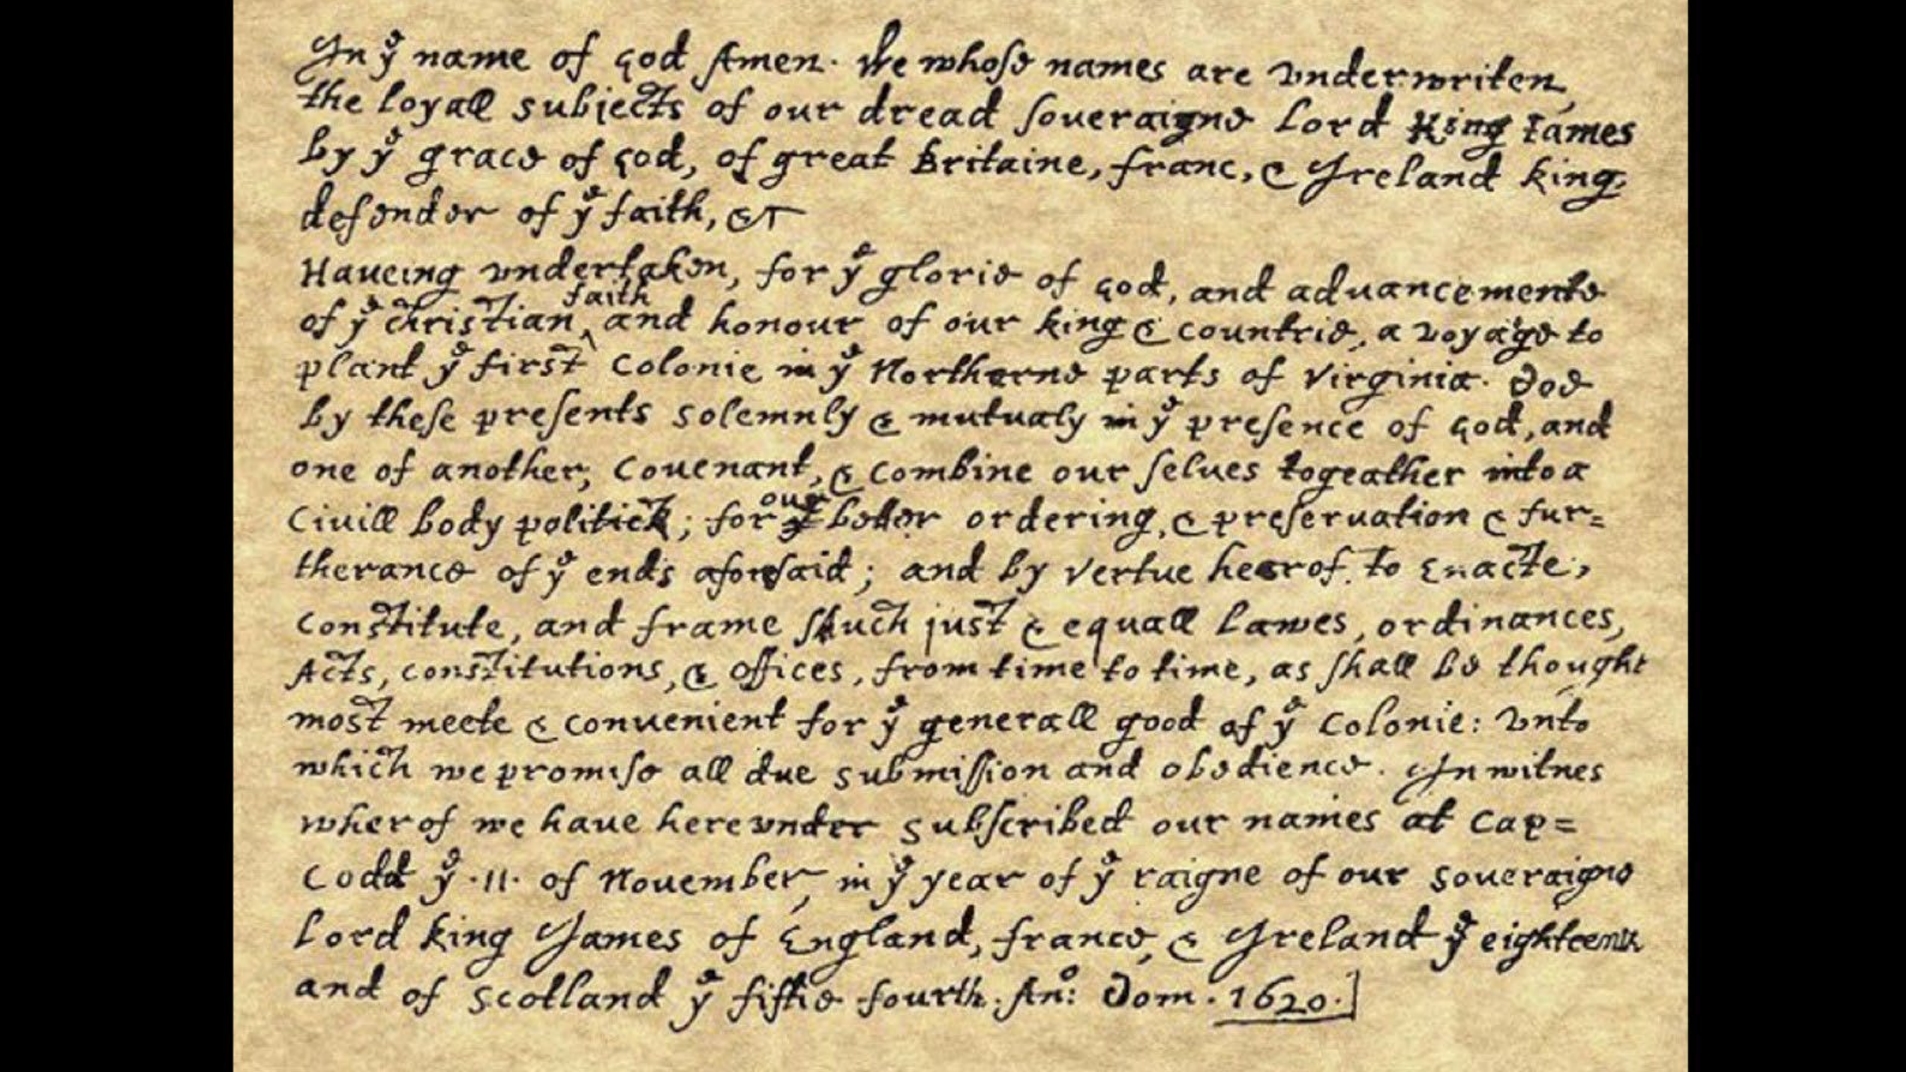 In yͤ name of god Amen· We whose names are vnderwriten,
the loyall subjects of our dread soueraigne Lord King Iames
by yͤ grace of god, of great Britaine, franc, & Ireland king,
defender of yͤ faith, &c
Haueing vndertaken, for yͤ glorie of god, and aduancemente
of yͤ christian ^faith and honour of our king & countrie, a voyage to
plant yͤ first colonie in yͤ Northerne parts of Virginia· doe
by these presents solemnly & mutualy in yͤ presence of god, and
one of another; couenant, & combine our selues togeather into a
ciuill body politick; for our better ordering, & preseruation & fur=
therance of yͤ ends aforesaid; and by vertue hearof to enacte,
constitute, and frame shuch just & equall lawes, ordinances,
Acts, constitutions, & offices, from time to time, as shall be thought
most meete & conuenient for yͤ generall good of yͤ Colonie: vnto
which we promise all due submission and obedience. In witnes
wherof we have hereunder subscribed our names at Cap=
Codd yͤ ·11· of Nouember, in yͤ year of yͤ raigne of our soueraigne
Lord king James of England, france, & Ireland yͤ eighteenth
and of Scotland yͤ fiftie fourth. An°: Dom· 1620·]